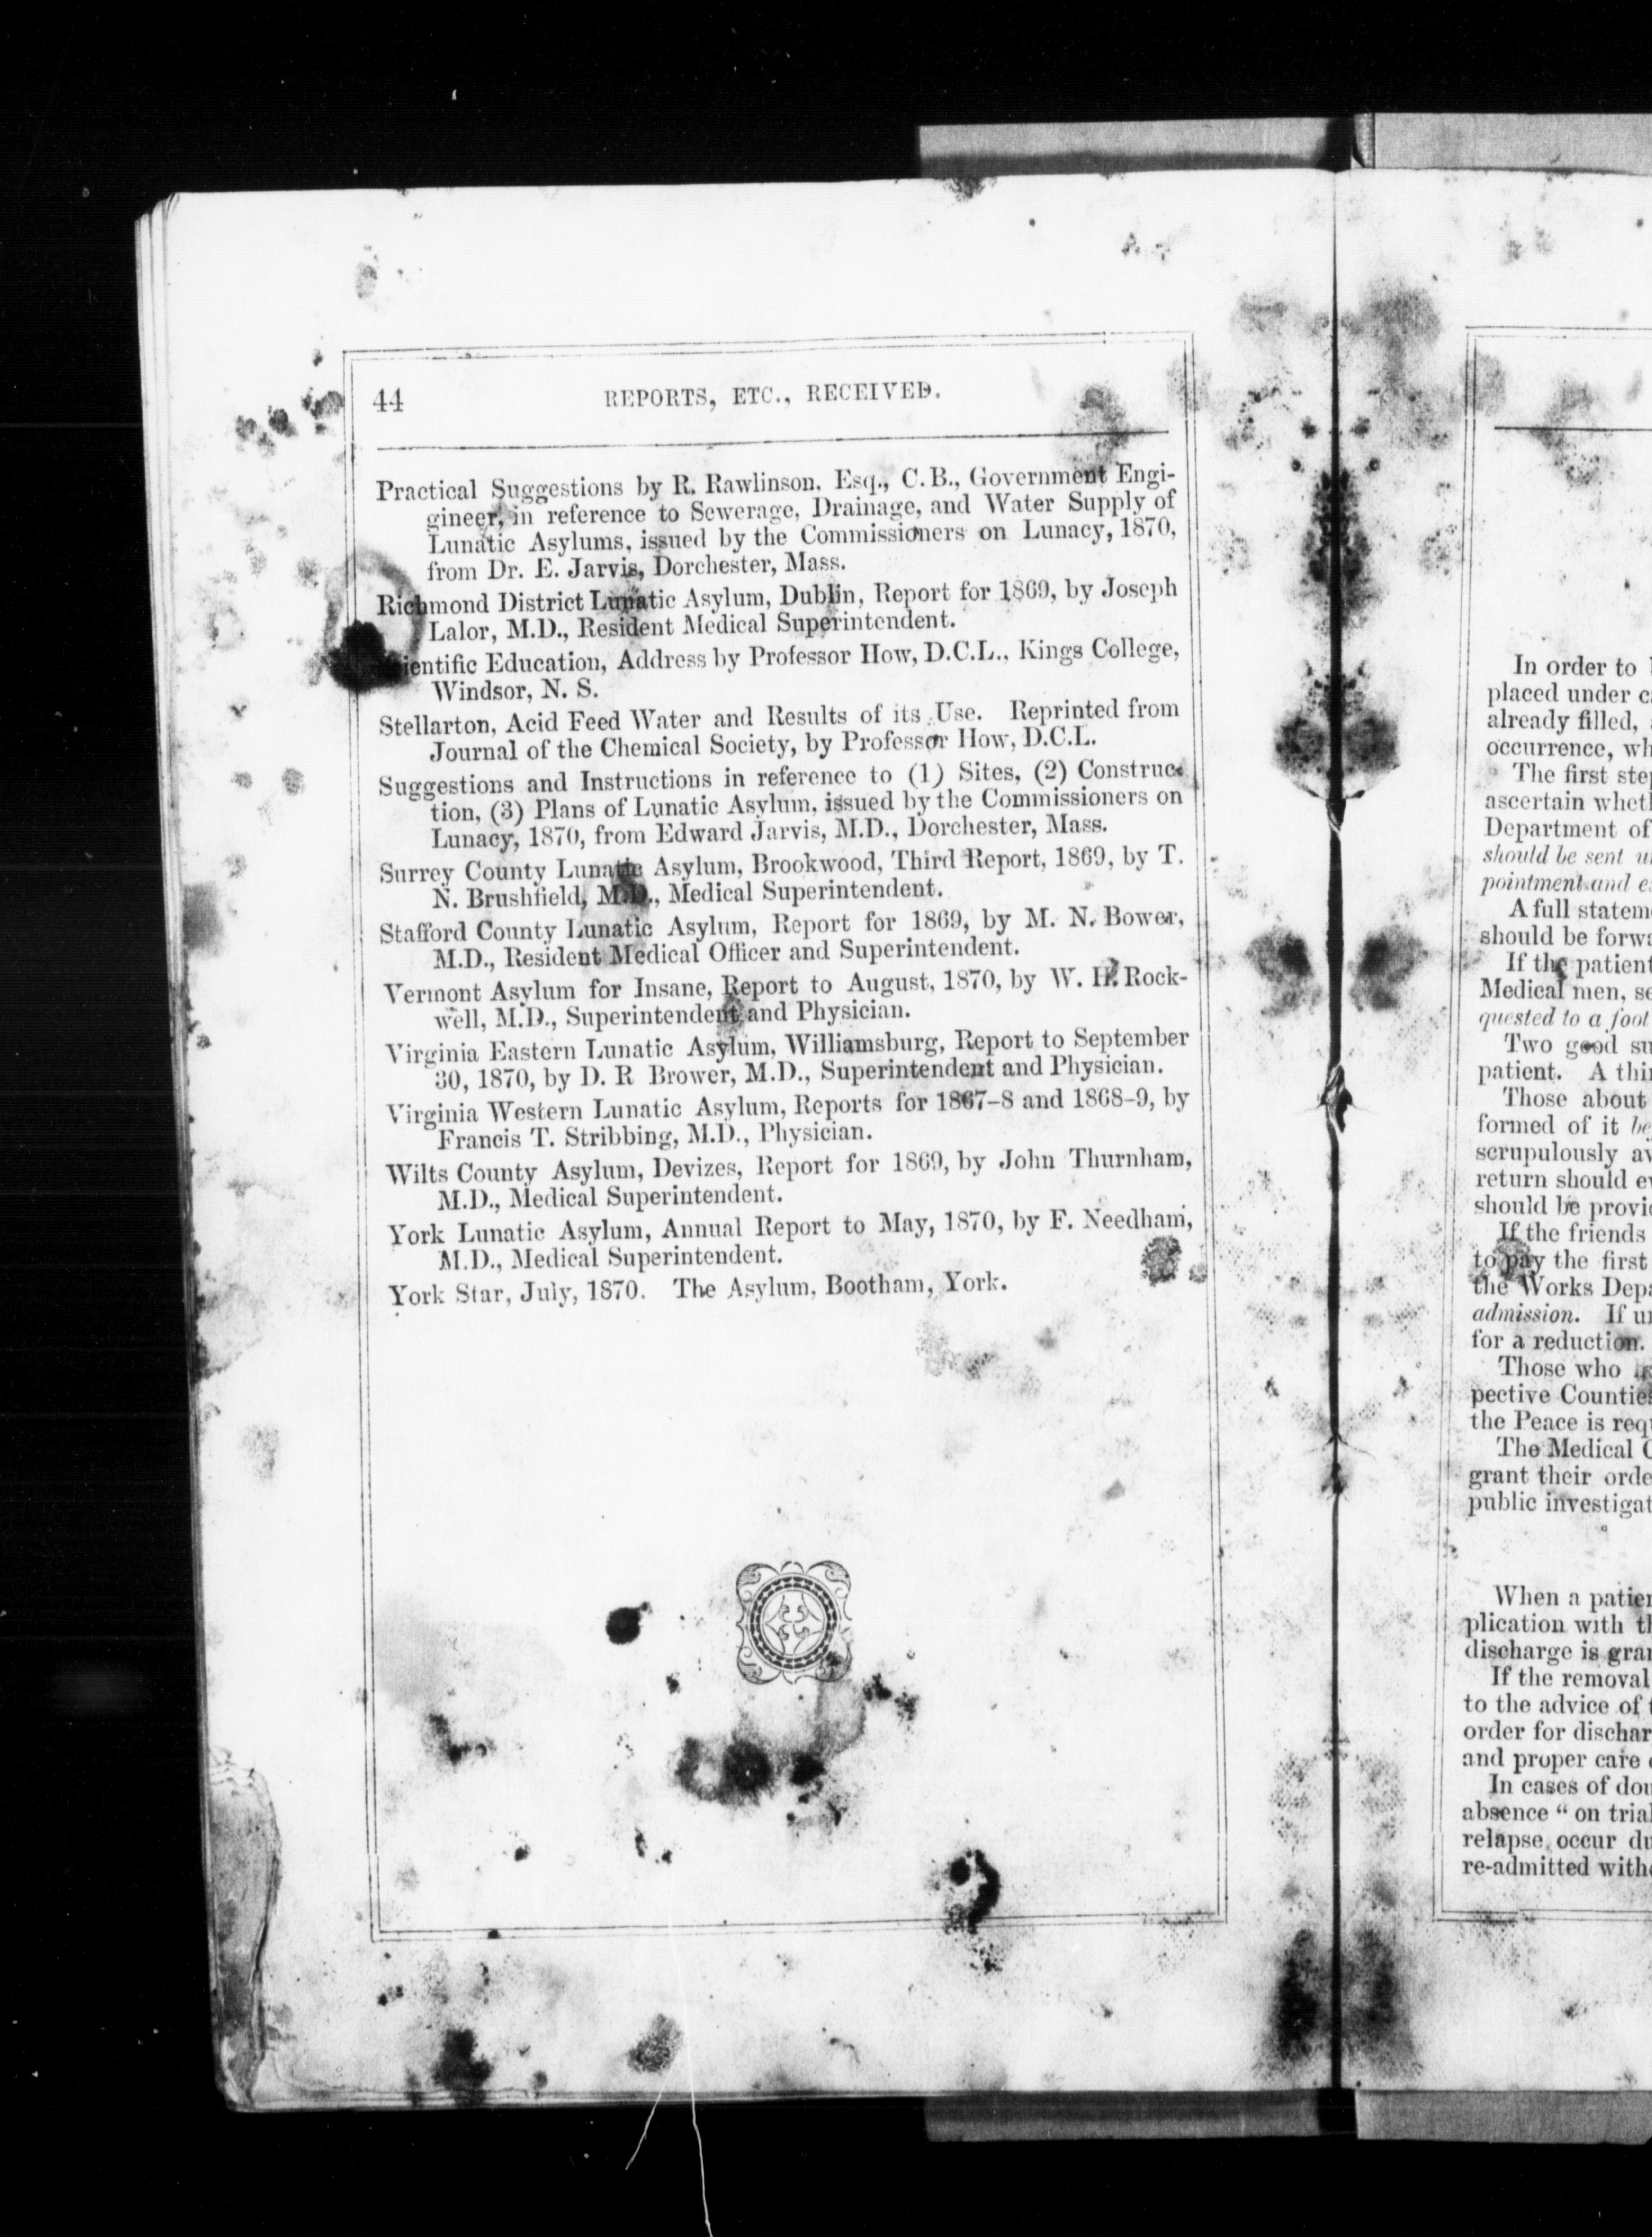 44 REPORTS, ETC., RECEIVED.
Practical Suggestions by R. Rawlinson, Esq., C.B., Government Engi-
gineer, in reference to Sewerage, Drainage, and Water Supply of
Lunatic Asylums, issued by the Commissioners on Lunacy, 1870,
from Dr. E. Jarvis, Dorchester, Mass.
Richmond District Lunatic Asylum, Dublin, Report for 1869, by Joseph
Lalor, M.D., Resident Medical Superintendent.
Scientific Education, Address by Professor How, D.C.L., Kings College,
Windsor, N. S.
Stellarton, Acid Feed Water and Results of its Use. Reprinted from
Journal of the Chemical Society, by Professor How, D.C.L.
Suggestions and Instructions in reference to (1) Sites, (2) Construc-
tion, (3) Plans of Lunatic Asylum, issued by the Commissioners on
Lunacy, 1870, from Edward Jarvis, M.D., Dorchester, Mass.
Surrey County Lunatic Asylum, Brookwood, Third Report, 1869, by T.
N. Brushfield, M.D., Medical Superintendent.
Stafford County Lunatic Asylum, Report for 1869, by M. N. Bower,
M.D., Resident Medical Officer and Superintendent.
Vermont Asylum for Insane, Report to August, 1870, by W. H. Rock-
well, M.D., Superintendent and Physician.
Virginia Eastern Lunatic Asylum, Williamsburg, Report to September
30, 1870, by D. R Brower, M.D., Superintendent and Physician.
Virginia Western Lunatic Asylum, Reports for 1867-8 and 1868-9, by
Francis T. Stribbing, M.D., Physician.
Wilts County Asylum, Devizes, Report for 1869, by John Thurnham,
M.D., Medical Superintendent.
York Lunatic Asylum, Annual Report to May, 1870, by F. Needham,
M.D., Medical Superintendent.
York Star, July, 1870. The Asylum, Bootham, York.
In order to
placed under
already filled,
occurrence,
The first
ascertain
Department of
should be sent
pointment and
A full
should be
If the patient
Medical men,
quested to a
Two good
patient. A
Those about
formed of it
scrupulously
return should
should be
If the friends
to pay the first
the Works
admission. If
for a reduction.
Those who
pective
the Peace is
The Medical
grant their
public
When a
plication with
discharge is
If the removal
to the advice of
order for
and proper care
In cases of
absence " on trial
relapse occur
re-admitted